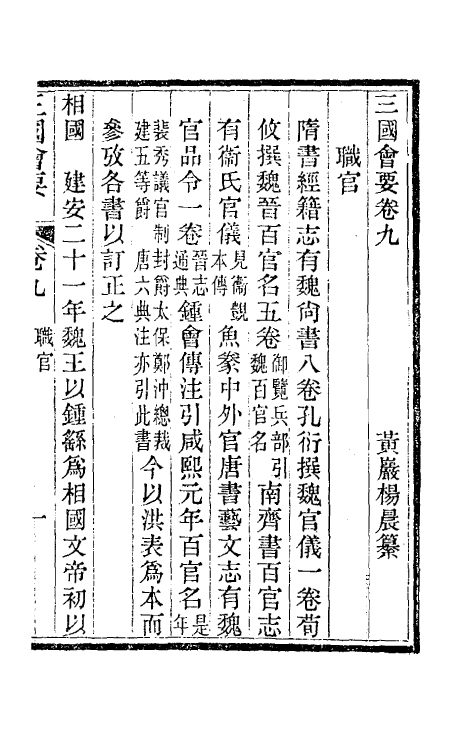 三國會要卷九
黃巖楊晨纂
職官
隋書經籍志有魏尙書八卷孔衍撰魏官儀一卷荀
攸撰魏晉百官名五卷御覽兵部引魏百官名南齊書百官志
有衞氏官儀見衞覬本傳魚豢中外官唐書藝文志有魏
官品令一卷晉志通典鍾會傳注引咸熙元年百官名是年
裴秀議官制封爵太保鄭沖總裁建五等爵唐六典注亦引此書今以洪表爲本而
參攷各書以訂正之
相國 建安二十一年魏王以鍾繇爲相國文帝初以
三國會要 卷九 職官 一